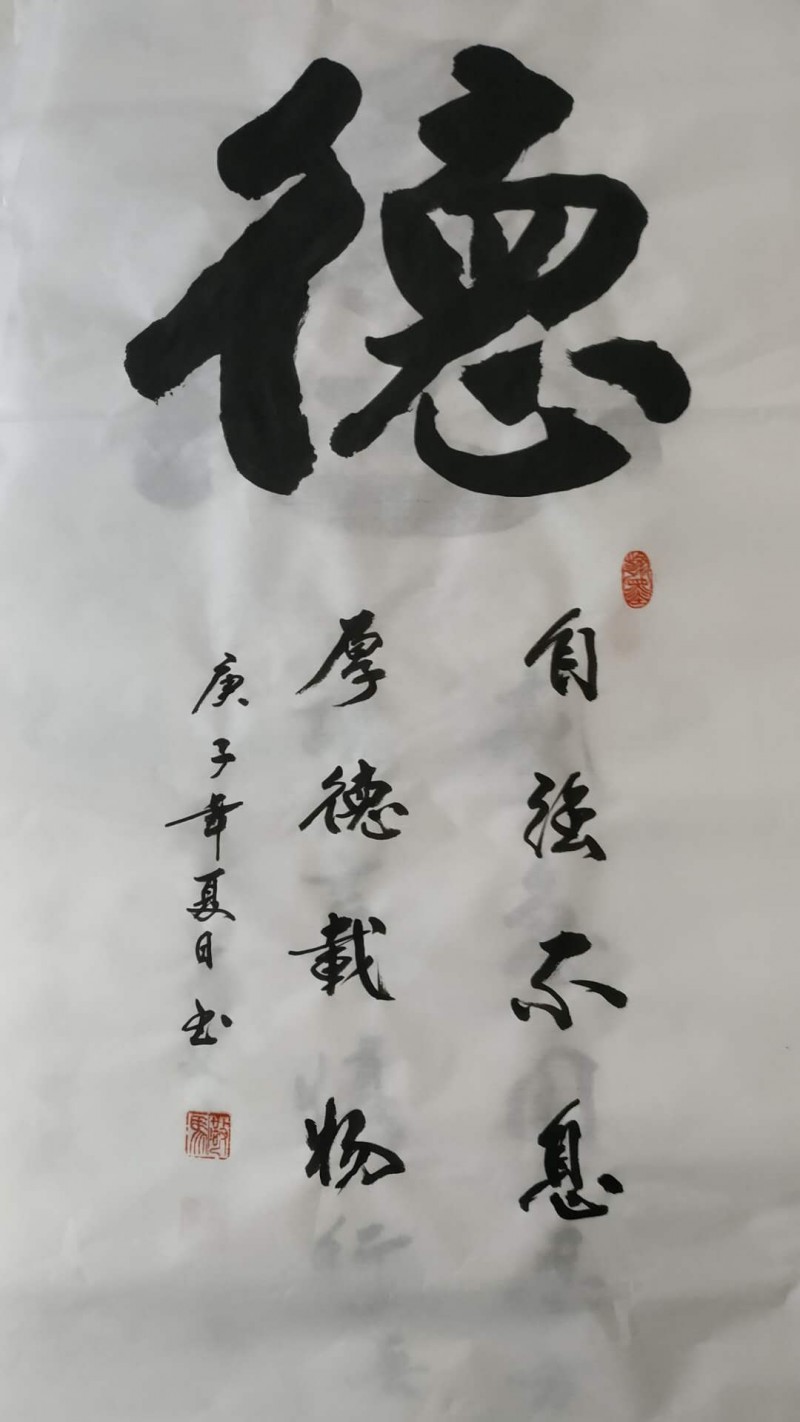 德
自强不息
厚德載物
庚子年夏日书